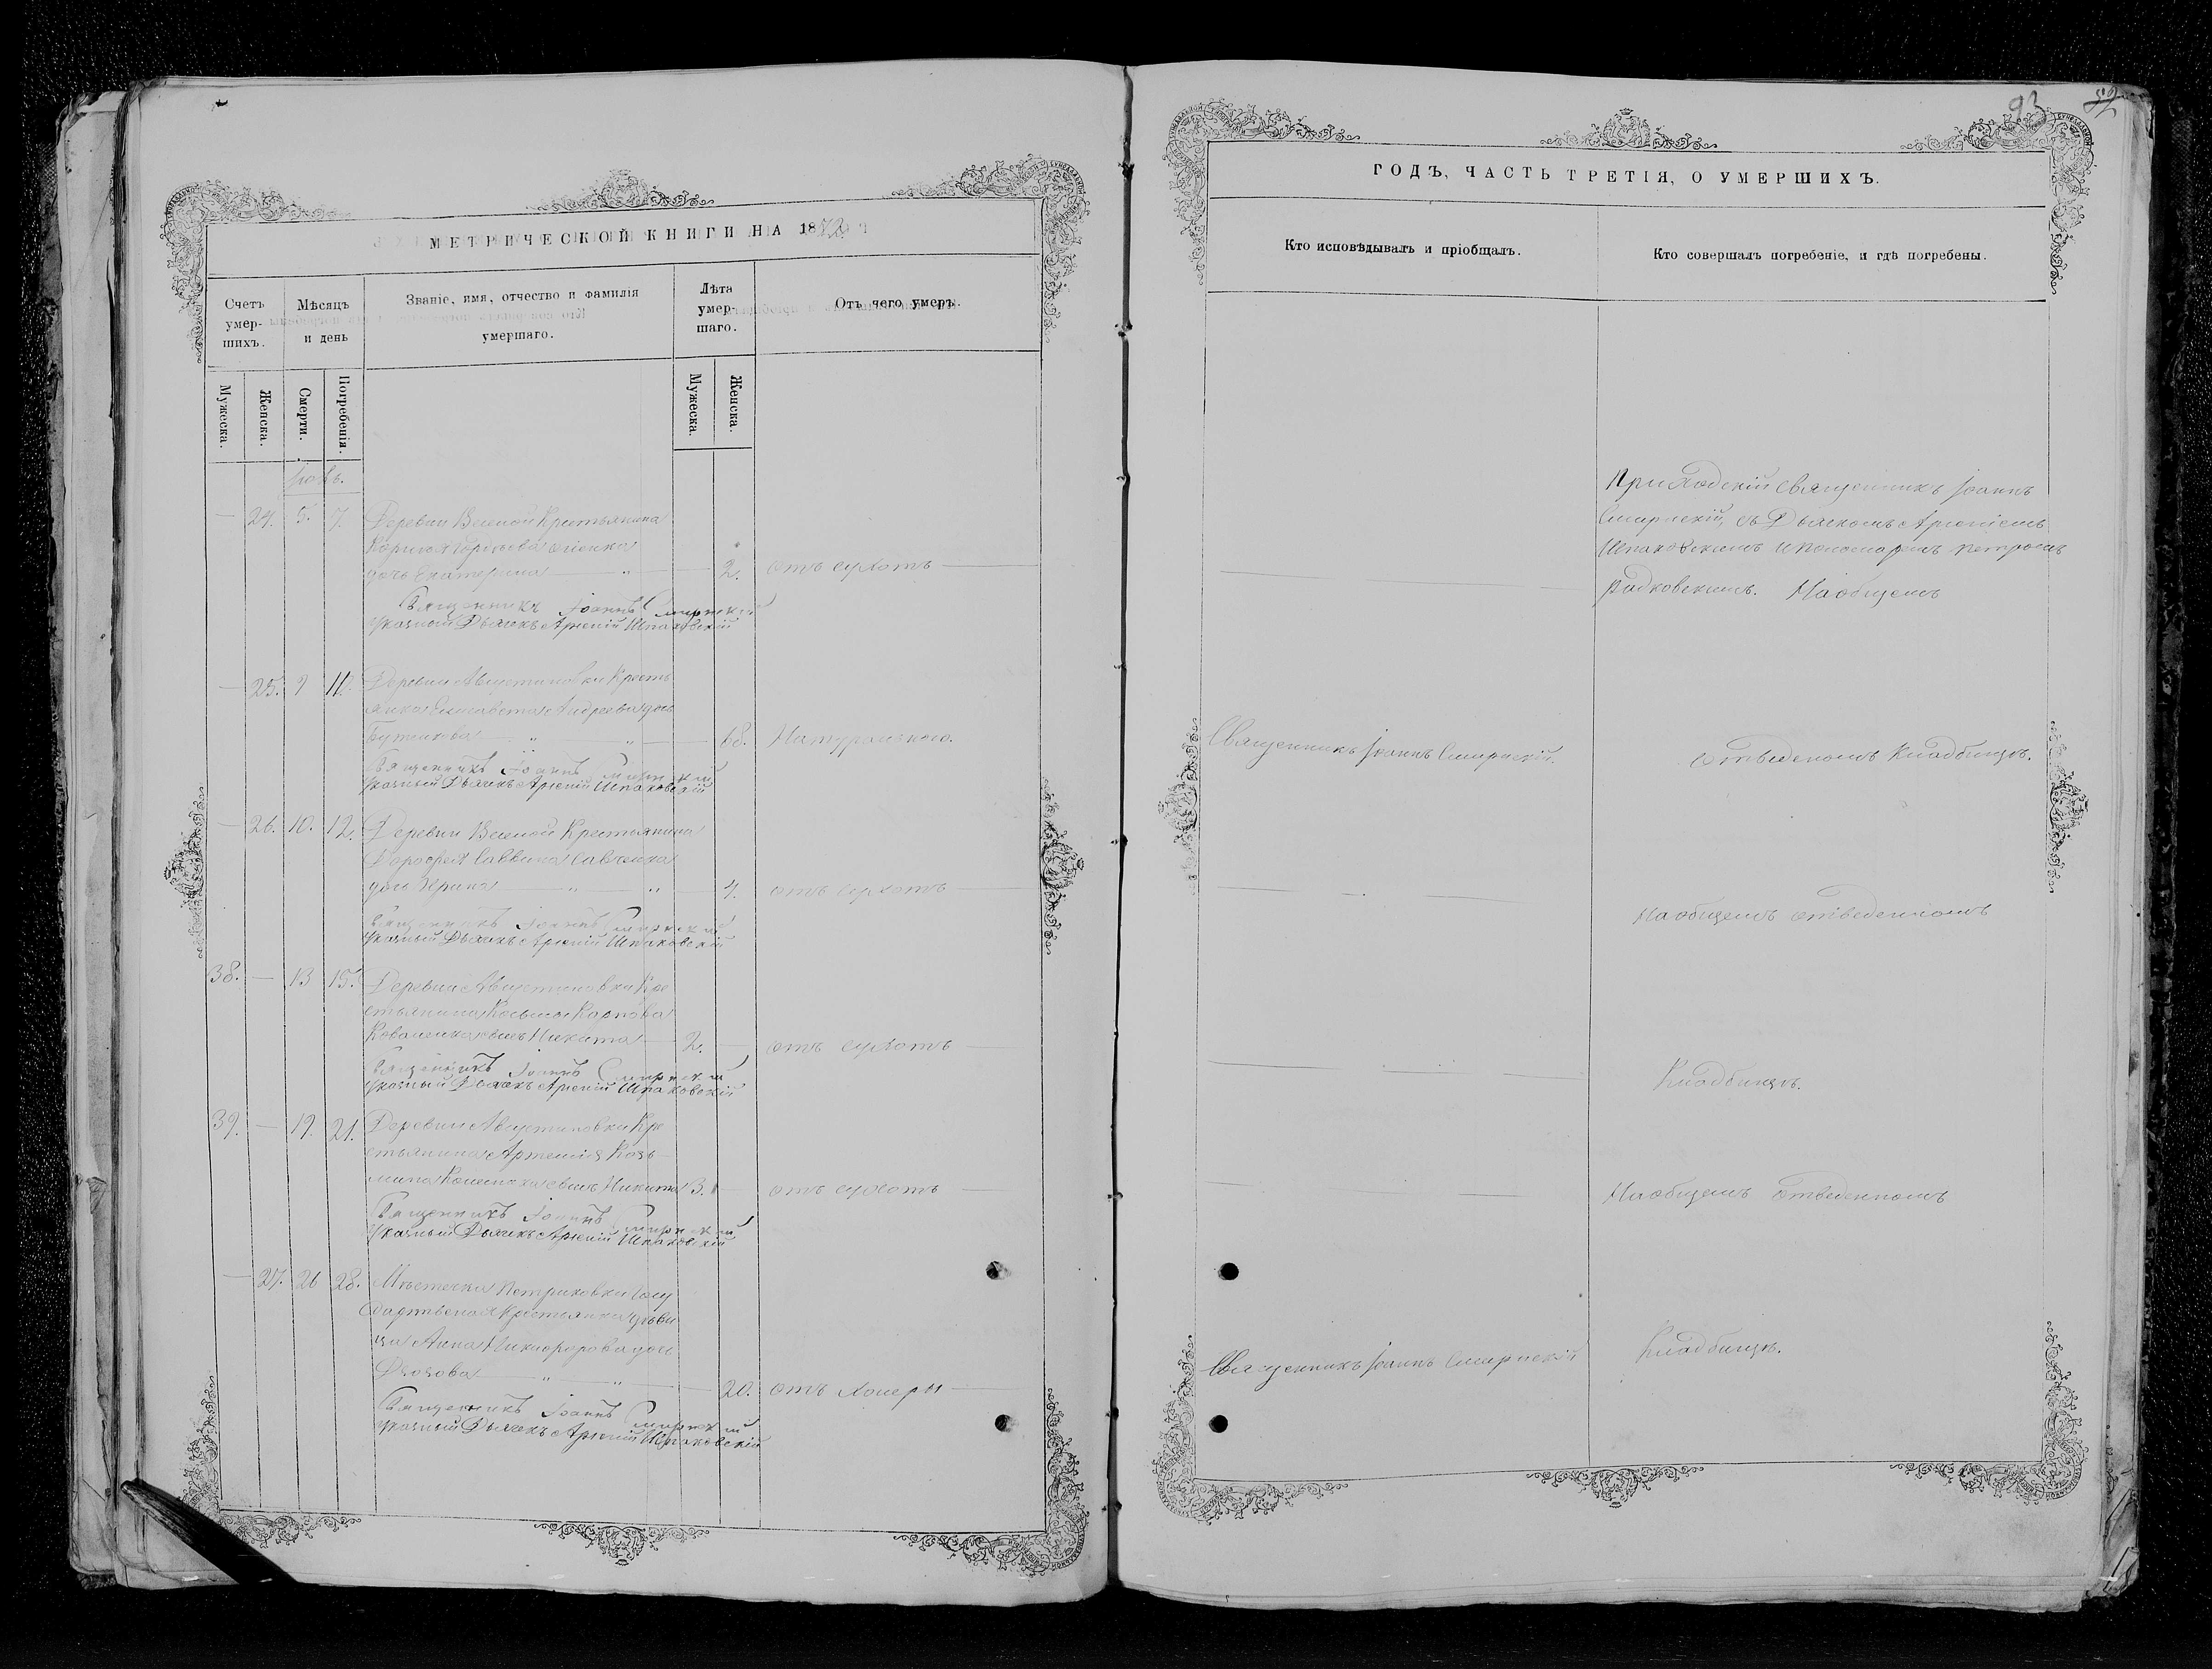 МЕТРИЧЕСКОЙ КНИГИ НА 1872
Счетъ умер-шихъ.
Мѣсяцъ и день
Званіе, имя, отчество и фамилія умершаго.
Лѣта умер-шаго.
Отъ чего умеръ.
Мужеска.
Женска.
Смерти.
Погребенія.
Мужеска.
Женска.
— 24. 5. 7. Деревни Веселой Крестьянина
дочь Екатерина — „ — 2. отъ сухотъ —
Священникъ Іоаннъ Смирнскій
Указный Дьячекъ Арсеній Шпаковскій
— 25. 9 11. Деревни Августиновки Кресть
янка Елисавета Андреева дочь
„ „ — 68. Натурально.
Священникъ Іоаннъ Смирнскій
Указный Дьячекъ Арсеній Шпаковскій
— 26. 10. 12. Деревни Веселой Крестьянина
Дорофея Саввина Савченка
дочь Ирина — „ „ — 4. отъ сухотъ —
Священникъ Іоаннъ Смирнскій
Указный Дьячекъ Арсеній Шпаковскій
38. — 13 15. Деревни Августиновки Кре
стьянина Косьмы Карпова
Коваленка сынъ Никита — 2. — отъ сухотъ —
Священникъ Іоаннъ Смирнскій
Указный Дьячекъ Арсеній Шпаковскій
39. — 19. 21. Деревни Августиновки Кре
стьянина Артемія Козь
мина сынъ Никита 3. — отъ сухотъ —
Священникъ Іоаннъ Смирнскій
Указный Дьячекъ Арсеній Шпаковскій
— 27. 26 28. Мѣстечка Петриковки Госу
дарственная Крестьянка дѣви
ца Анна Никифорова дочь
„ „ — 20. отъ холеры —
Священникъ Іоаннъ Смирнскій
Указный Дьячекъ Арсеній Шпаковскій
93
52
ГОДЪ, ЧАСТЬ ТРЕТІЯ, О УМЕРШИХЪ.
Кто исповѣдывалъ и пріобщалъ.
Кто совершалъ погребеніе, и гдѣ погребены.
Приходскій Священникъ Іоаннъ
Смирнскій, съ Дьячкомъ Арсеніемъ
Шпаковскимъ и пономаремъ Петромъ
Радковскимъ. На общемъ
Священникъ Іоаннъ Смирнскій.
отведеномъ Кладбищѣ.
На общемъ отведенномъ
Кладбищѣ.
На общемъ отведенномъ
Священникъ Іоаннъ Смирнскій
Кладбищѣ.